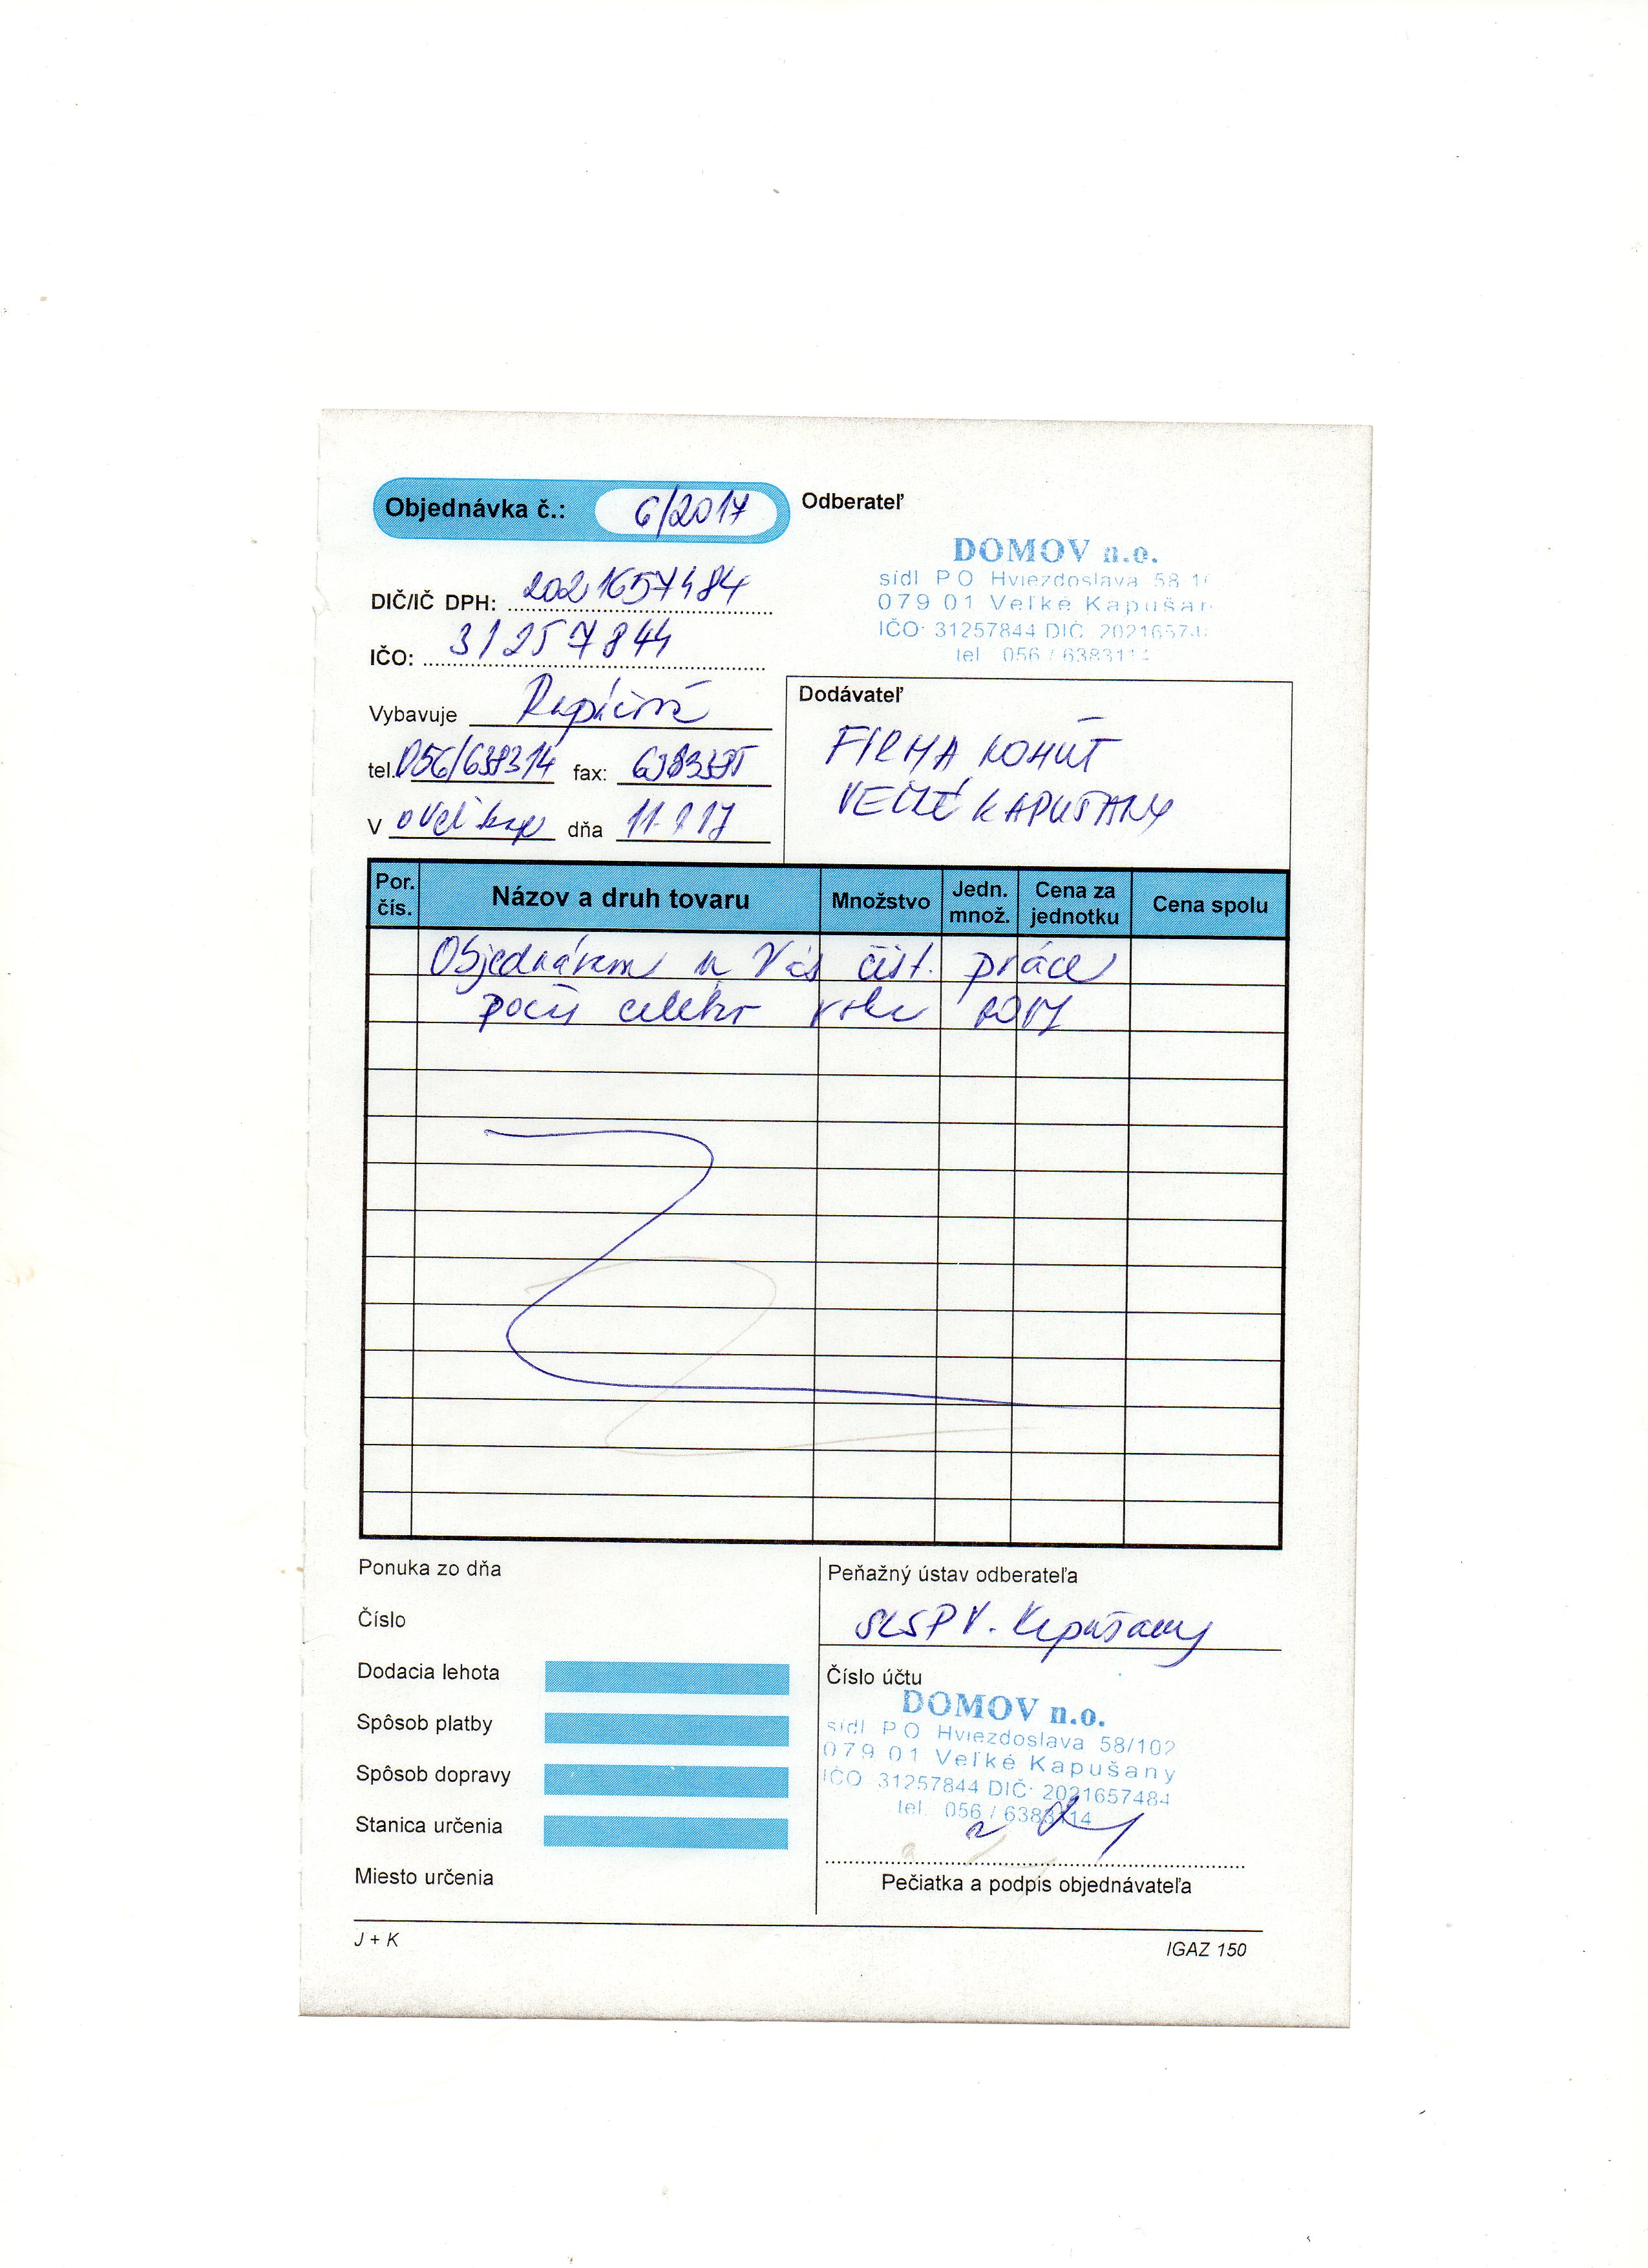 Objednávka č.: 6/2017
Odberateľ
DOMOV n.o.
sídl PO Hviezdoslava 58
079 01 Veľké Kapušan
IČO: 31257844 DIČ 20216574
tel 056 / 638311
DIČ/IČ DPH: 2021657484
IČO: 31257844
Vybavuje
tel. 056/638314 fax:
V dňa
Dodávateľ
FIRMA KOHÚT
VEĽKÉ KAPUŠANY
Por. čís. Názov a druh tovaru Množstvo Jedn. množ. Cena za jednotku Cena spolu
Objednávam u Vás čist. práce
počas celého roku 2017
Ponuka zo dňa
Číslo
Dodacia lehota
Spôsob platby
Spôsob dopravy
Stanica určenia
Miesto určenia
Peňažný ústav odberateľa
SLSP V. Kapušany
Číslo účtu
DOMOV n.o.
sídl PO Hviezdoslava 58/102
079 01 Veľké Kapušany
IČO 31257844 DIČ: 2021657484
tel. 056 / 6383114
Pečiatka a podpis objednávateľa
J + K
IGAZ 150